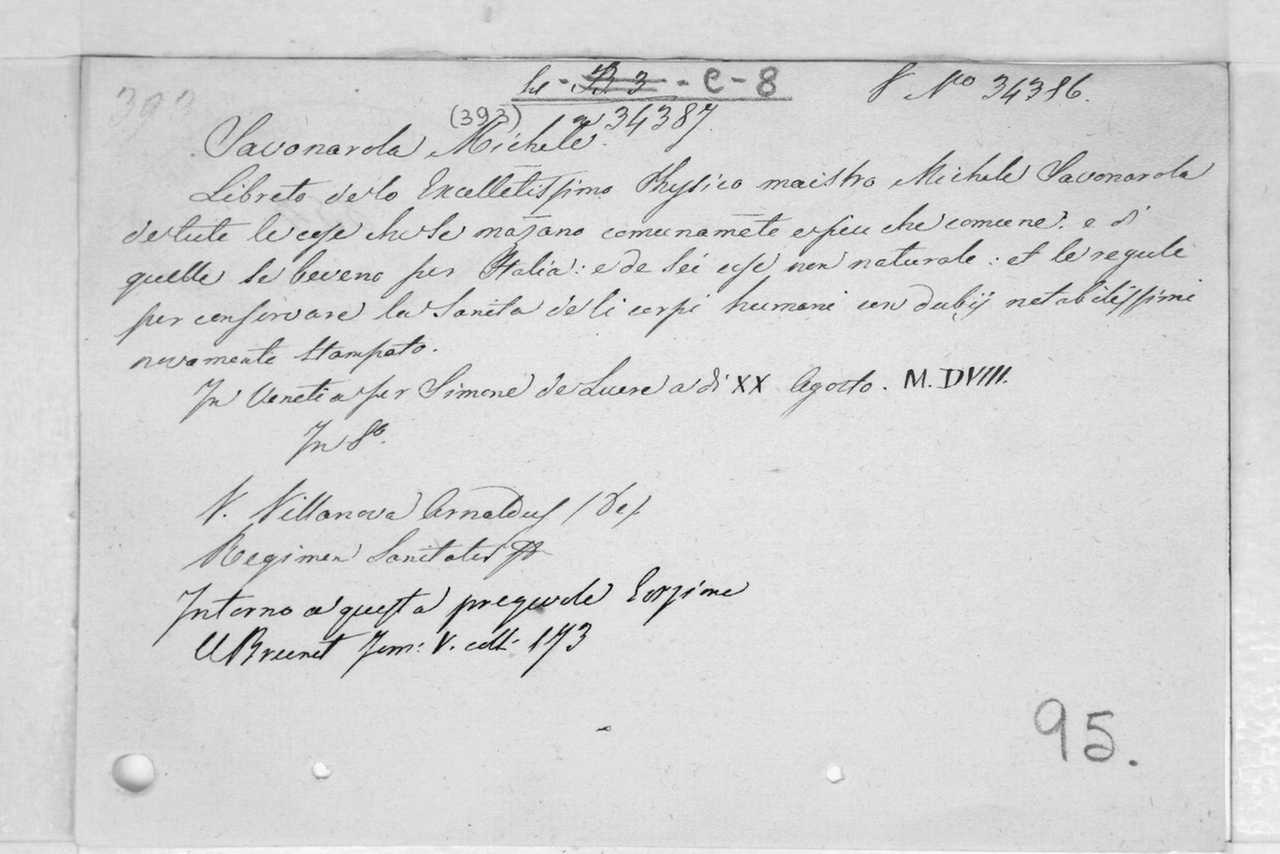 393
- B 3 - C - 8
N.o 34386.
(393)
a 34387.
Savonarola Michele.
Libreto de lo Excellētissimo Physico maistro Michele Savonarola
de tute le cose che se māzano comunamēte e piu che comune: e di
quelle se beveno per Italia: e de sei cose non naturale: et le regule
per conservare la Sanita de li corpi humani con dubij notabilissimi
novamente stampato.
In Venetia per Simone de Luere a di XX Agosto. M.DVIII.
In 8.o
V. Villanova Arnaldus (de)
Regimen Sanitatis
Intorno a questa pregevole Edizione
V. Brunet Tom: V. coll. 173
95.